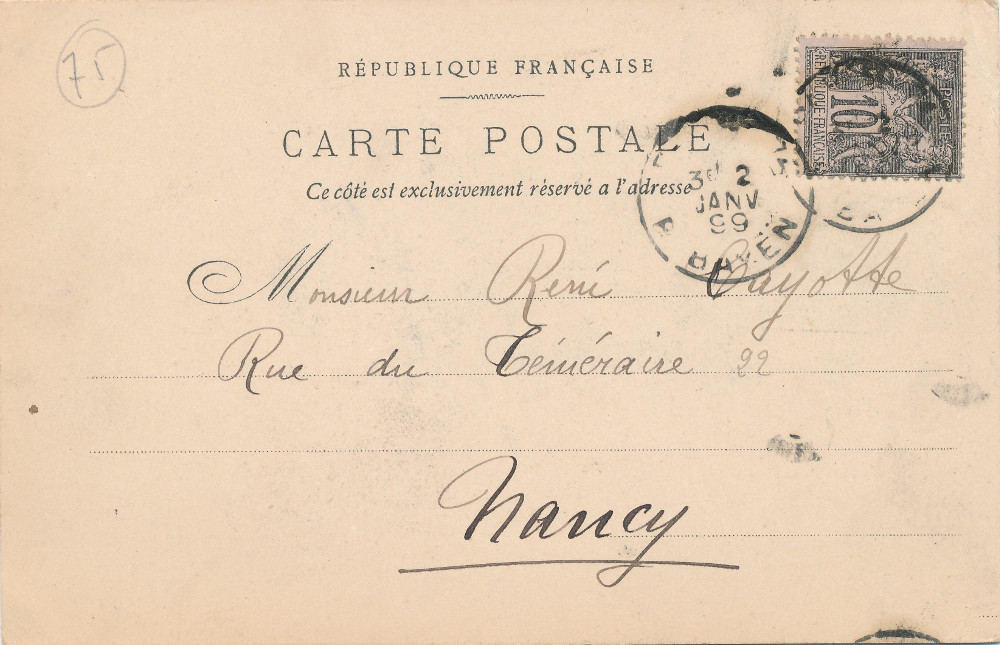 75
RÉPUBLIQUE FRANÇAISE
CARTE POSTALE
Ce côté est exclusivement réservé a l'adresse
POSTE
10
REPUBLIQUE FRANÇAISE
3E 2
JANV
99
Monsieur René Cayotte
Rue du Téméraire 22
Nancy